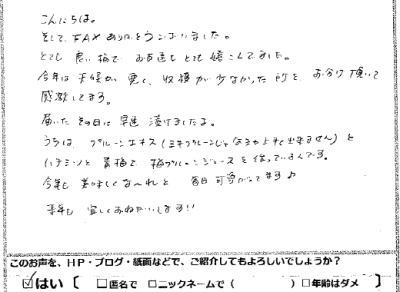 こんにちは。
そして、FAX ありがとうございました。
とても 良い梅で お友達も とても 喜こんでました。
今年は 天候が 悪く、収穫が 少なかった 所を お分け 頂いて
感謝してます。
届いた その日に 早速 漬けましたよ。
うちは、プルーンエキス(ミキプルーンじゃなきゃ上手く出来ません)と
ハチミツと 青梅で 梅プルーンジュースを 作っているんです。
今年も 美味しくな〜れと 毎日 可愛がってます♪
来年も 宜しくおねがいします!!
このお声を、HP・ブログ・紙面などで、ご紹介してもよろしいでしょうか?
☑はい [ □匿名で □ニックネームで( ) □年齢はダメ ]